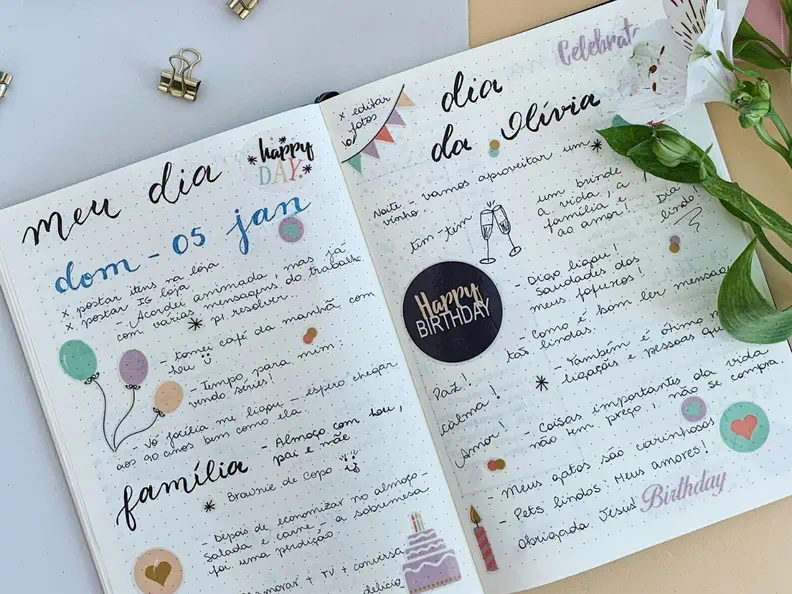 meu dia
happy
DAY.
dom - 05 jan
x postar itens na loja
x postar IG loja
- Acordei animada, mas já
com várias mensagens do trabalho
p/ resolver.
- tomei café da manhã com
Lou
- Tempo para mim:
vendo séries!
- Vó Jocélia me ligou - espero chegar
aos 90 anos bem como ela.
família
- Almoço com Lou,
pai e mãe
Brownie de Copo
- Depois de economizar no almoço -
salada e carne - a sobremesa
foi uma perdição.
+ TV + conversa
x editar
fotos
dia
da Olívia
Celebrat
Noite - vamos aproveitar um
vinho.
tim-tim
um brinde
à vida, a
família e
ao amor!
Dia
lindo!
Happy
BIRTHDAY
- Digo ligou!
Saudades dos
meus fofuros!
- Como é bom ler mensagens
tão lindas.
- Também é ótimo
ligações e pessoas
Paz!
calma!
Amor!
- Coisas importantes da vida
não tem preço, não se compra
- Meus gatos são carinhosos
- Pets lindos. Meus amores!
Obrigada Jesus!
Birthday